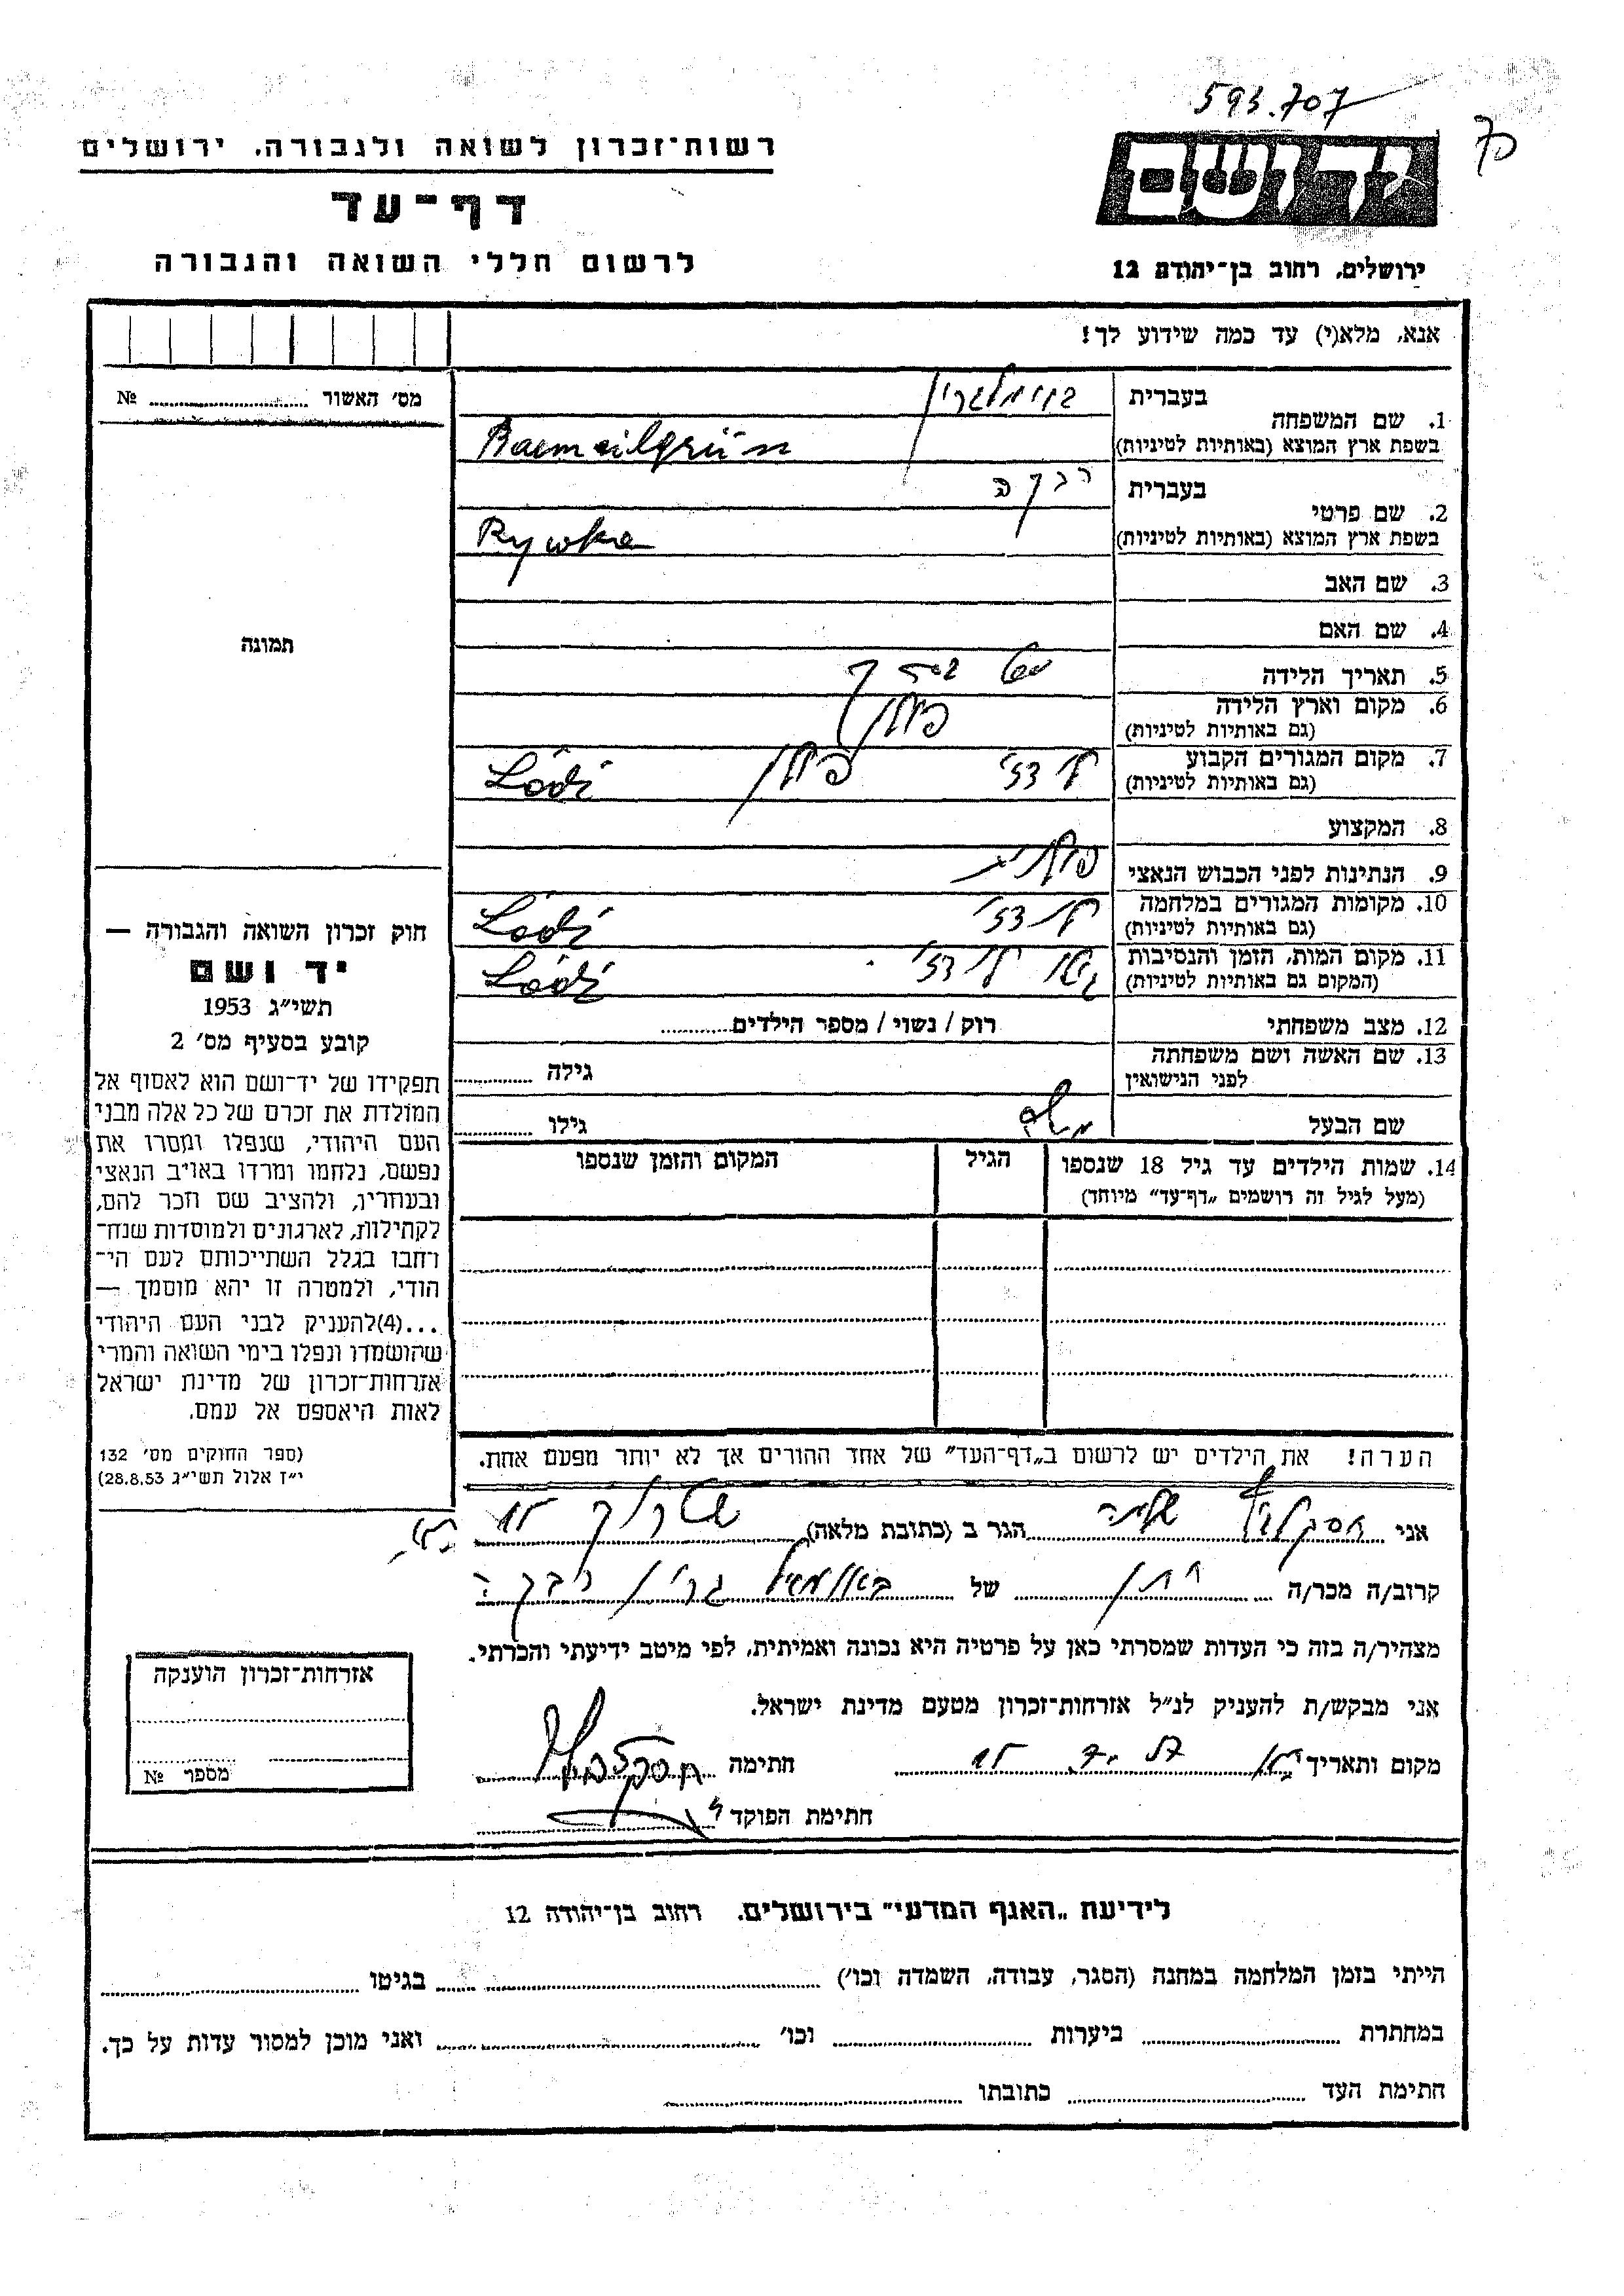 593.707
יד ושם
ירושלים, רחוב בן־יהודה 12
רשות־זכרון לשואה ולגבורה, ירושלים
דף־עד
לרשום חללי השואה והגבורה
אנא, מלא(י) עד כמה שידוע לך!
מס׳ האשור № 
1. שם המשפחה
בעברית
בשפת ארץ המוצא (באותיות לטיניות) Baemailgrün
2. שם פרטי
בעברית רבקה
בשפת ארץ המוצא (באותיות לטיניות) Rywka
3. שם האב
4. שם האם
5. תאריך הלידה
6. מקום וארץ הלידה פולין
(גם באותיות לטיניות)
7. מקום המגורים הקבוע לודז׳ פולין Łódź
(גם באותיות לטיניות)
8. המקצוע
9. הנתינות לפני הכבוש הנאצי פולנית
10. מקומות המגורים במלחמה לודז׳ Łódź
(גם באותיות לטיניות)
11. מקום המות, הזמן והנסיבות גטו לודז׳. Łódź
(המקום גם באותיות לטיניות)
12. מצב משפחתי רווק / נשוי / מספר הילדים
13. שם האשה ושם משפחתה
לפני הנישואין גילה
שם הבעל משה גילו
14. שמות הילדים עד גיל 18 שנספו הגיל המקום והזמן שנספו
(מעל לגיל זה רושמים „דף־עד״ מיוחד)
הערה! את הילדים יש לרשום ב„דף־העד״ של אחד ההורים אך לא יותר מפעם אחת.
תמונה
חוק זכרון השואה והגבורה —
יד ושם
תשי״ג 1953
קובע בסעיף מס׳ 2
תפקידו של יד־ושם הוא לאסוף אל
המולדת את זכרם של כל אלה מבני
העם היהודי, שנפלו ומסרו את
נפשם, נלחמו ומרדו באויב הנאצי
ובעוזריו, ולהציב שם וזכר להם,
לקהילות, לארגונים ולמוסדות שנח־
רבו בגלל השתייכותם לעם הי־
הודי, ולמטרה זו יהא מוסמך —
...(4)להעניק לבני העם היהודי
שהושמדו ונפלו בימי השואה והמרי
אזרחות־זכרון של מדינת ישראל
לאות היאספם אל עמם.
(ספר החוקים מס׳ 132
י״ז אלול תשי״ג 28.8.53)
אני הגר ב (כתובת מלאה)
קרוב/ה מכר/ה חתן של באומאל גרין רבקה
מצהיר/ה בזה כי העדות שמסרתי כאן על פרטיה היא נכונה ואמיתית, לפי מיטב ידיעתי והכרתי.
אני מבקש/ת להעניק לנ״ל אזרחות־זכרון מטעם מדינת ישראל.
מקום ותאריך חתימה
חתימת הפוקד
אזרחות־זכרון הוענקה
מספר №
לידיעת „האגף המדעי״ בירושלים, רחוב בן־יהודה 12
הייתי בזמן המלחמה במחנה (הסגר, עבודה, השמדה וכו׳) בגיטו
במחתרת ביערות וכו׳ ואני מוכן למסור עדות על כך.
חתימת העד כתובתו